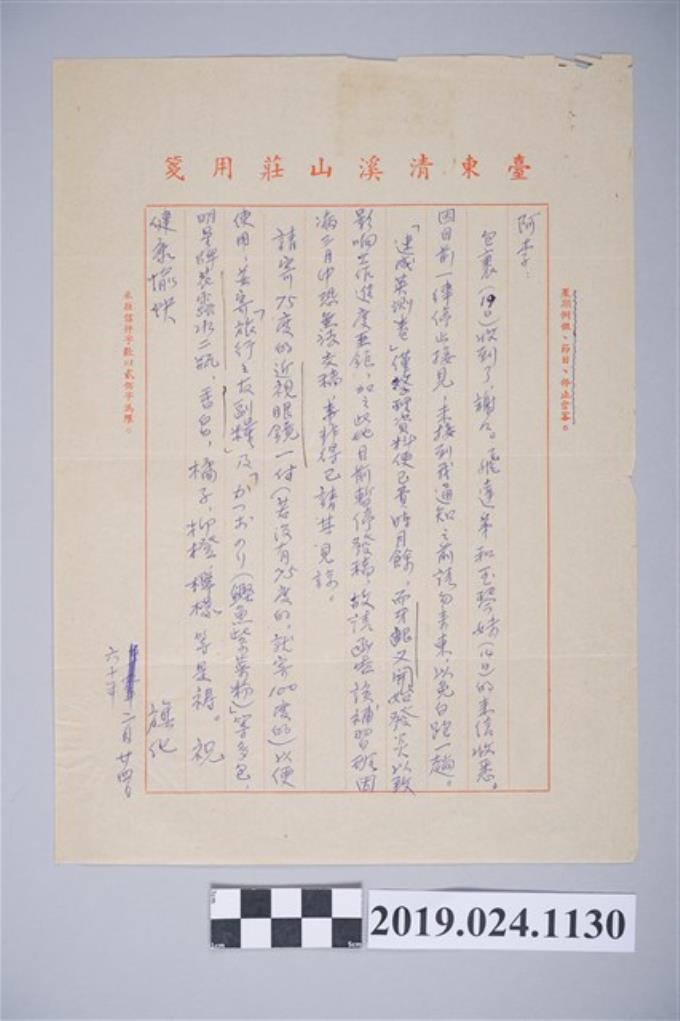 臺東清溪山莊用箋
星期例假、節日、停止會客。
阿李:
包裹(19日)收到了,謝々。飛達弟和玉琴妹(14日)的来信收悉。
因目前一律停止接見,未接到我通知之前請勿来東,以免白跑一趟。
「速成英測書」僅整理資料便已費時月餘,而牙齦又開始發炎以致
影响工作進度至鉅,加之此地目前暫停發稿,故請函告該補習班因
病二月中恐無法交稿,事非得已請其見諒。
請寄75度的近視眼鏡一付(若沒有75度的,就寄100度的)以便
使用,並寄「旅行之友副糧」及「かつおのり(鰹魚紫菜粉)」等多包,
明星牌花露水二瓶,香皂,橘子,柳橙,檸檬等是禱。祝
健康愉快
旗化
六十年二月廿四日
未經信件字數以貳佰字為限。
2019.024.1130